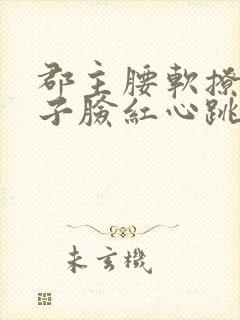 郡主腰軟撩
子臉紅心跳
未玄機